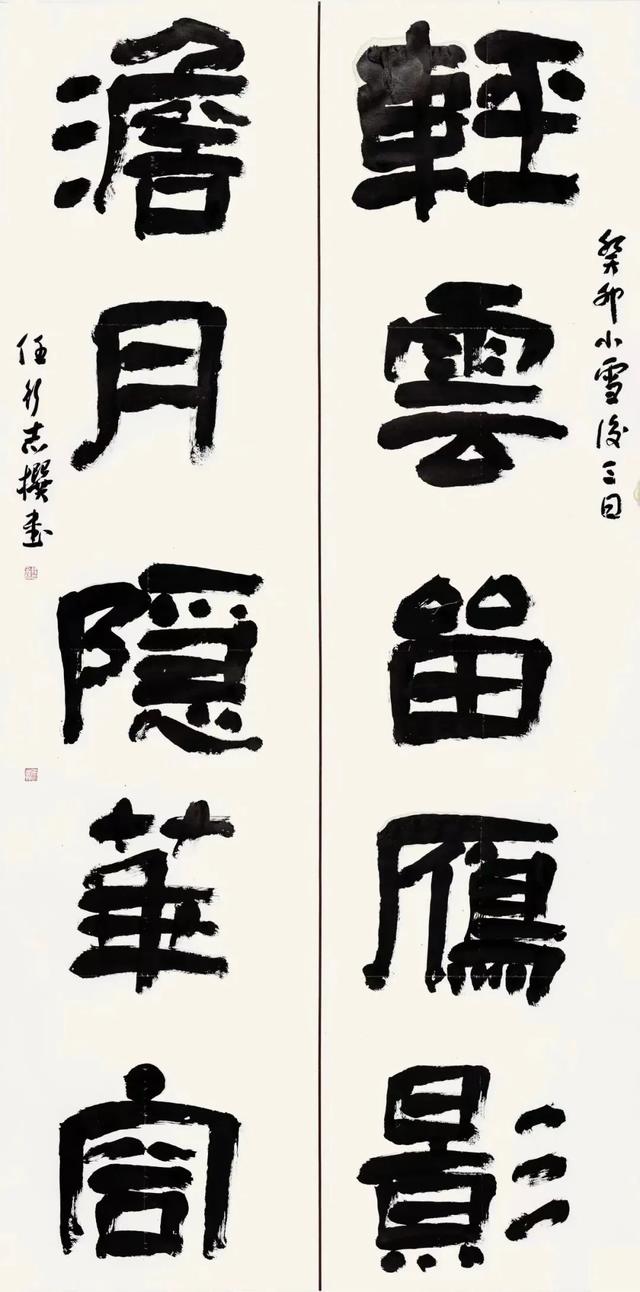 輕雲留鴈影
癸卯小雪後三日
澹月隱華容
任行志撰書